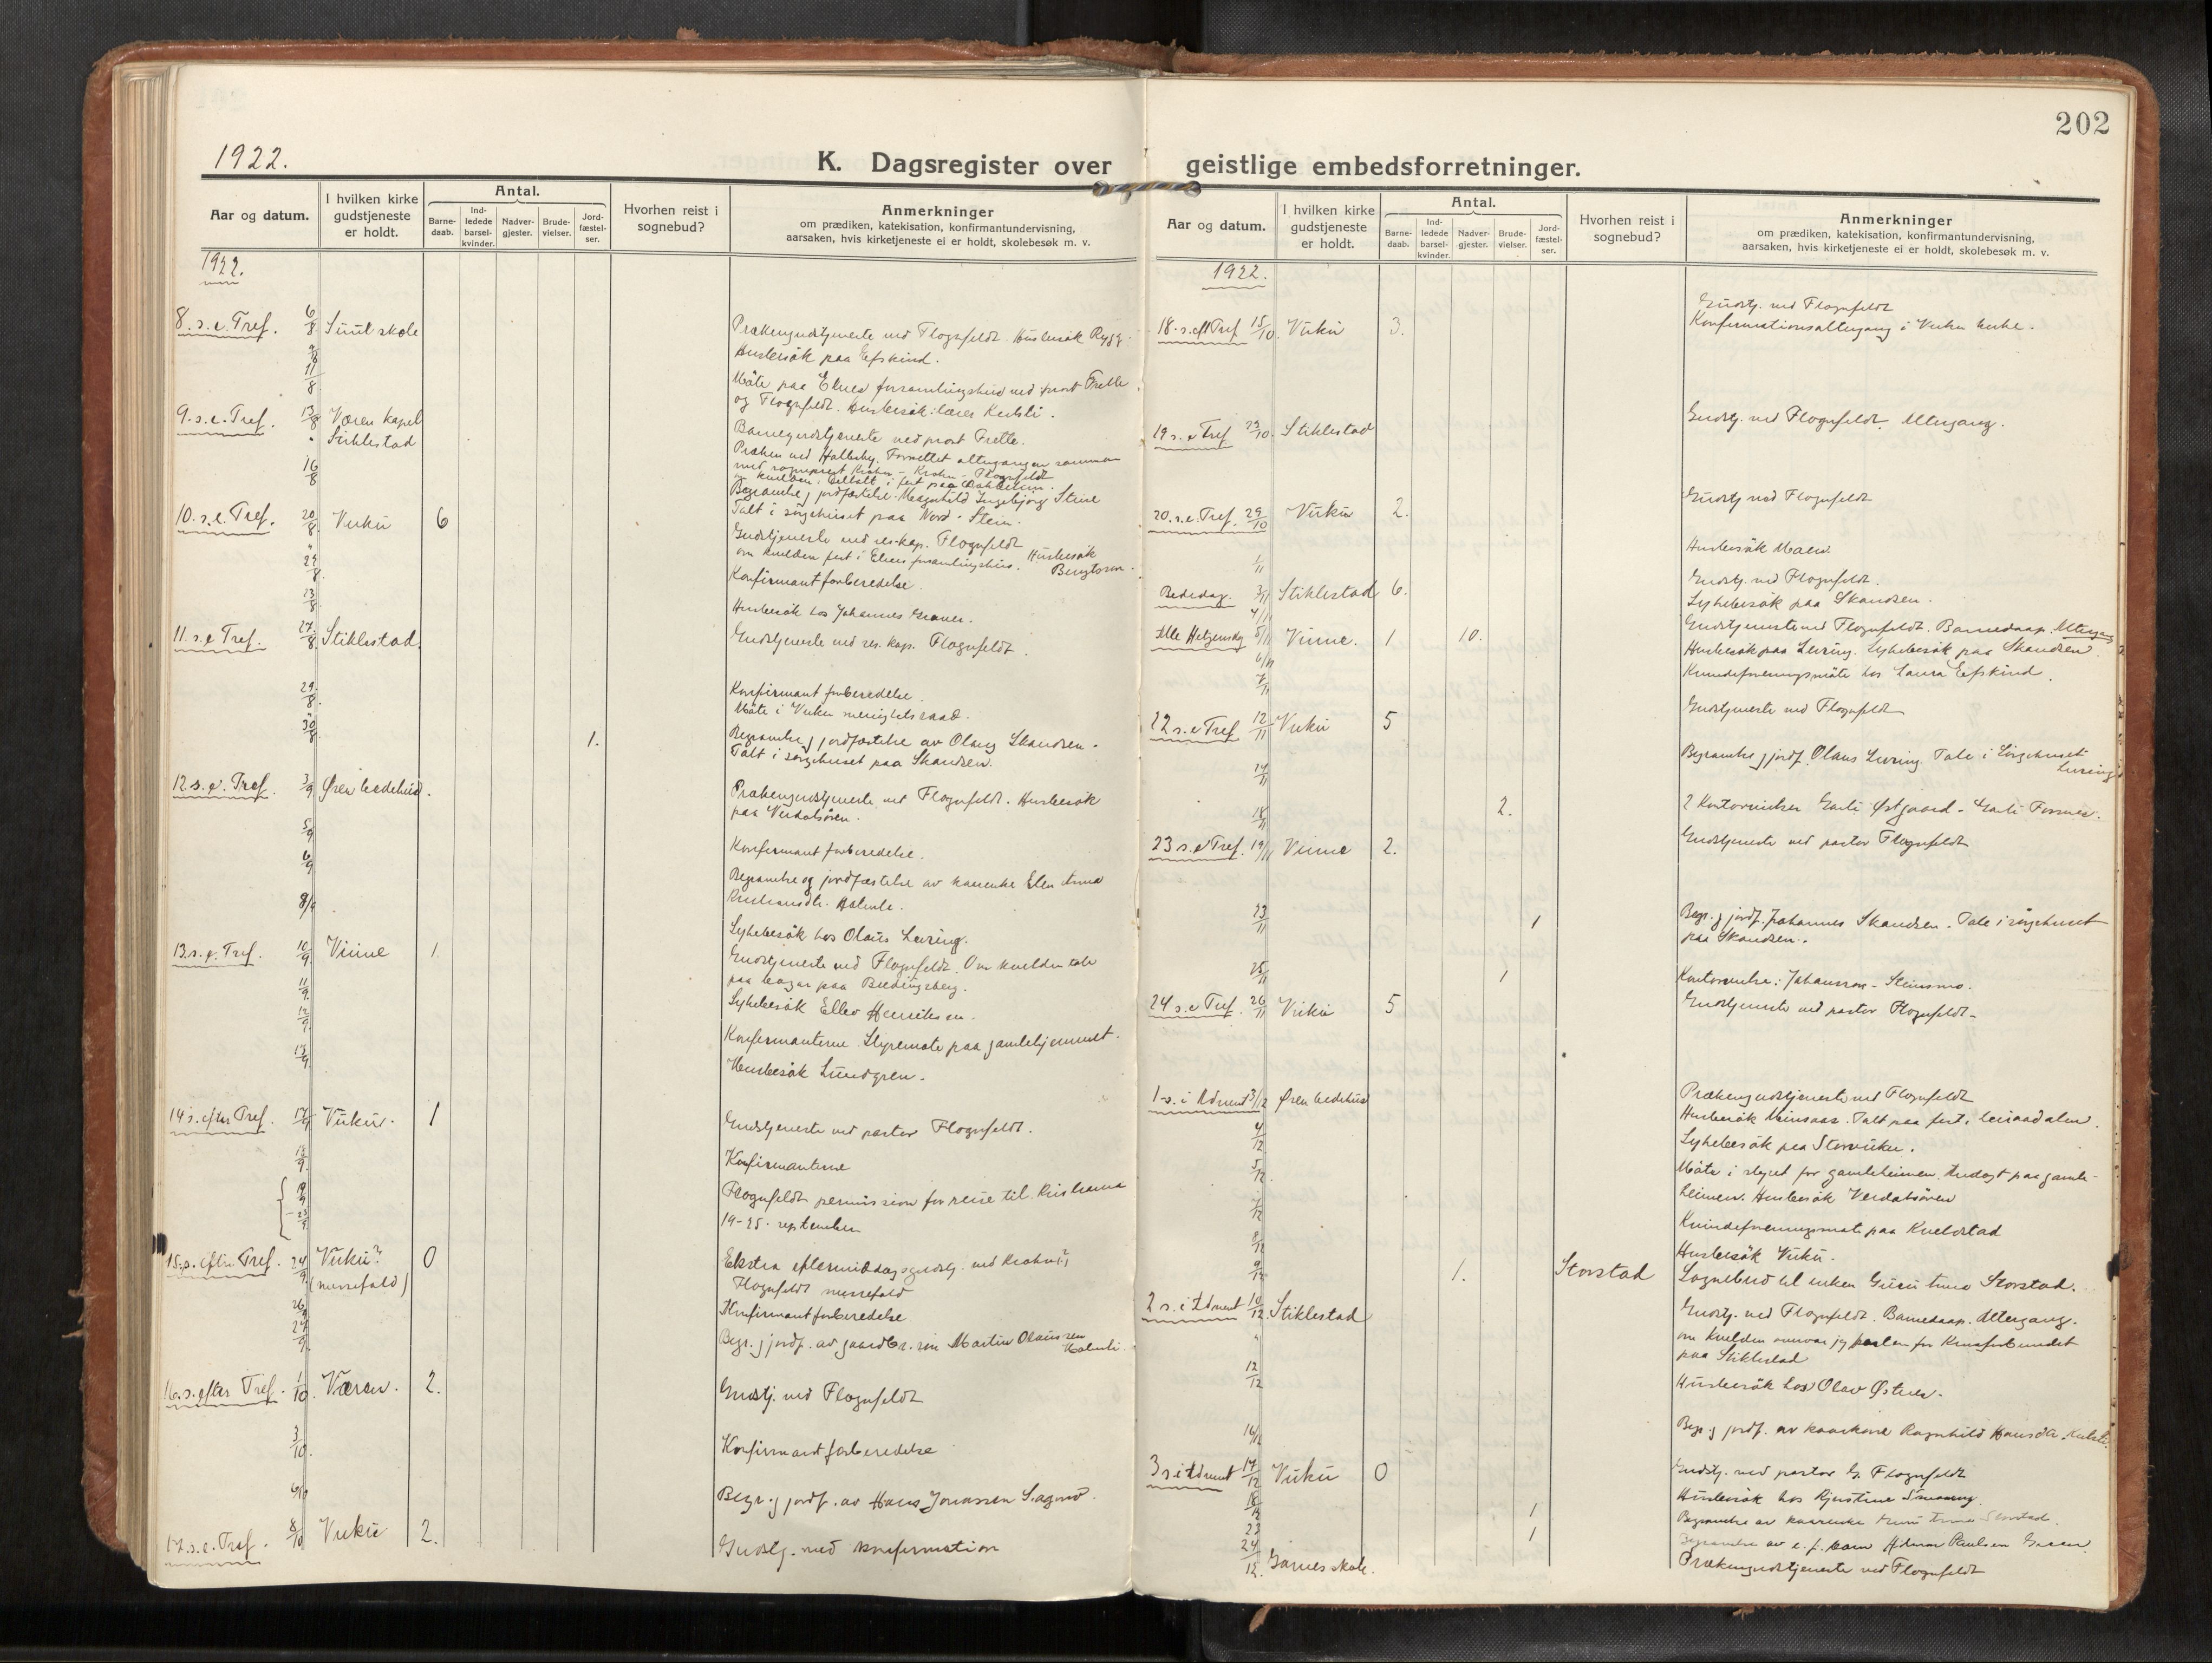 1922.
K. Dagsregister over
Aar og datum.
I hvilken kirke gudstjeneste er holdt.
Antal.
Barne-daab.
Ind-ledede barsel-kvinder.
Nadver-gjester.
Brude-vielser.
Jord-fæstel-ser.
Hvorhen reist i sognebud?
Anmerkninger
om prædiken, katekisation, konfirmantundervisning,
aarsaken, hvis kirketjeneste ei er holdt, skolebesøk m. v.
1922.
8. s. e. Tref. 6/8 Suul skole Prækengudstjeneste ved Flognfeldt. Husbesök Rygg.
9/8 Husbesök paa Efskind.
11/8 Möte paa Elnes forsamlingshus ved prost Frette
og Flognfeldt. Husbesök: lærer
9. s. e. Tref. 13/8 Væren kapel Barnegudstjeneste ved prost Frette.
" Stiklestad Præken ved Hallesby. Forrettet altergangen sammen
med sogneprest Krohn - Krohn - Flognfeldt
16/8 Begravelse j jordfæstelse. Magnhild Ingebjörg Stene
Talt i sörgehuset paa Nord-Stein.
10. s. e. Tref. 20/8 Vuku 6 Gudstjeneste ved res. kap. Flognfeldt
om kvelden fest i Elnes forsamlingshus. Husbesök
Bengtson.
Konfirmantforberedelse.
23/8 Husbesök hos Johannes
11. s. e Tref. 27/8 Stiklestad. Gudstjeneste ved res. kap. Flognfeldt.
29/8 Konfirmantforberedelse.
Möte i Vuku menighetsraad.
30/8 1. Begravelse j jordfæstelse av Olaug Skandsen.
Talt i sörgehuset paa Skandsen.
12. s. e. Tref. 3/9 Øren bedehus. Prækengudstjeneste ved Flognfeldt. Husbesök
paa Verdalsören.
5/9 Konfirmantforberedelse.
6/9 Begravelse og jordfæstelse av kaarenke Elen Anna
8/9 Sykebesök hos Olaus Levring.
13. s. e. Tref. 10/9 Vinne 1. Gudstjeneste ved Flognfeldt. Om kvelden tale
paa basar paa
11/9 Sykebesök Ellev Henriksen.
12/9 Konfirmanterne. Styremöte paa gamlehjemmet.
13/9 Husbesök Lundgren.
14 s. efter Tref. 17/9 Vuku. 1 Gudstjeneste ved pastor Flognfeldt.
Konfirmanterne
19/9 Flognfeldt permission for reise til Kristiania
25/9 19-25. september
15. s. efter Tref. 24/9 Vuku? 0 Ekstra eftermiddagsgudstj. ved Krohn?,
(messefald) Flognfeldt messefald
26/9 Konfirmantforberedelse
27/9 Begr. j jordf. av gaardbr. sön Martin Olaussen
16. s. efter Tref. 1/10. Væren. 2. Gudstj. ved Flognfeldt
3/10. Konfirmantforberedelse
6/10 Begr. j jordf. av Hans Jonassen
17. s. e. Tref. 8/10 Vuku 2. Gudstj. med konfirmation
202
geistlige embedsforretninger.
Aar og datum.
I hvilken kirke gudstjeneste er holdt.
Antal.
Barne-daab.
Ind-ledede barsel-kvinder.
Nadver-gjester.
Brude-vielser.
Jord-fæstel-ser.
Hvorhen reist i sognebud?
Anmerkninger
om prædiken, katekisation, konfirmantundervisning,
aarsaken, hvis kirketjeneste ei er holdt, skolebesøk m. v.
1922.
Gudstj. ved Flognfeldt
18. s. eft Tref 15/10. Vuku 3. Konfirmationsaltergang i Vuku kirke.
19 s. e Tref 22/10. Stiklestad Gudstj. ved Flognfeldt. Altergang.
20. s. e. Tref. 29/10 Vuku 2. Gudstj ved Flognfeldt
1/11 Husbesök
Bededag. 3/11 Stiklestad 6. Gudstj. ved Flognfeldt.
4/11 Sykebesök paa Skandsen.
Alle Helgensdag 5/11 Vinne. 1 10. Gudstjeneste ved Flognfeldt. Barnedaap. Altergang
6/11 Husbesök paa Levring. Sykebesök paa Skandsen.
7/11 Kvindeforeningsmöte hos Laura Efskind.
22 s. e Tref 12/11 Vuku 5 Gudstjeneste ved Flognfeldt
14/11 Begravelse j jordf. Olaus Levring. Tale i Sörgehuset
Levring
18/11 2. 2 Kontorvielser
23 s. e Tref. 19/11 Vinne 2. Gudstjeneste ved pastor Flognfeldt
23/11 1 Begr. j jordf. Johannes Skandsen. Tale i sörgehuset
paa Skandsen.
25/11 1 Kontorvielse: Johansson - Steinsmo.
24 s. e Tref. 26/11 Vuku 5 Gudstjeneste ved pastor Flognfeldt.
1. s. i Advent 3/12 Øren bedehus Prækengudstjeneste ved Flognfeldt
Husbesök Talt paa fest i
4/12 Sykebesök paa Storvuku.
5/12 Möte i styret for gamleheimen. Andagt paa gamle-
heimen. Husbesök Verdalsören
Kvindeforeningsmöte paa
8/12 Husbesök Vuku.
9/12 1. Storstad Sognebud til enken Guru Storstad.
2 s. i Advent 10/12 Stiklestad Gudstj. ved Flognfeldt. Barnedaap. Altergang.
" om kvelden
paa Stiklestad
12/12 Husbesök hos Olav Østnes.
14/12 Begr. j jordf. av kaarkone Ragnhild Hansdtr.
3 s i Advent 17/12 Vuku 0 Gudstj. ved pastor G. Flognfeldt
18/12 Husbesök hos Kjerstine
1 Begravelse av kaarenke Guru Storstad.
23 1 Begravelse av
24/12. Garnes skole. Prækengudstjeneste ved Flognfeldt